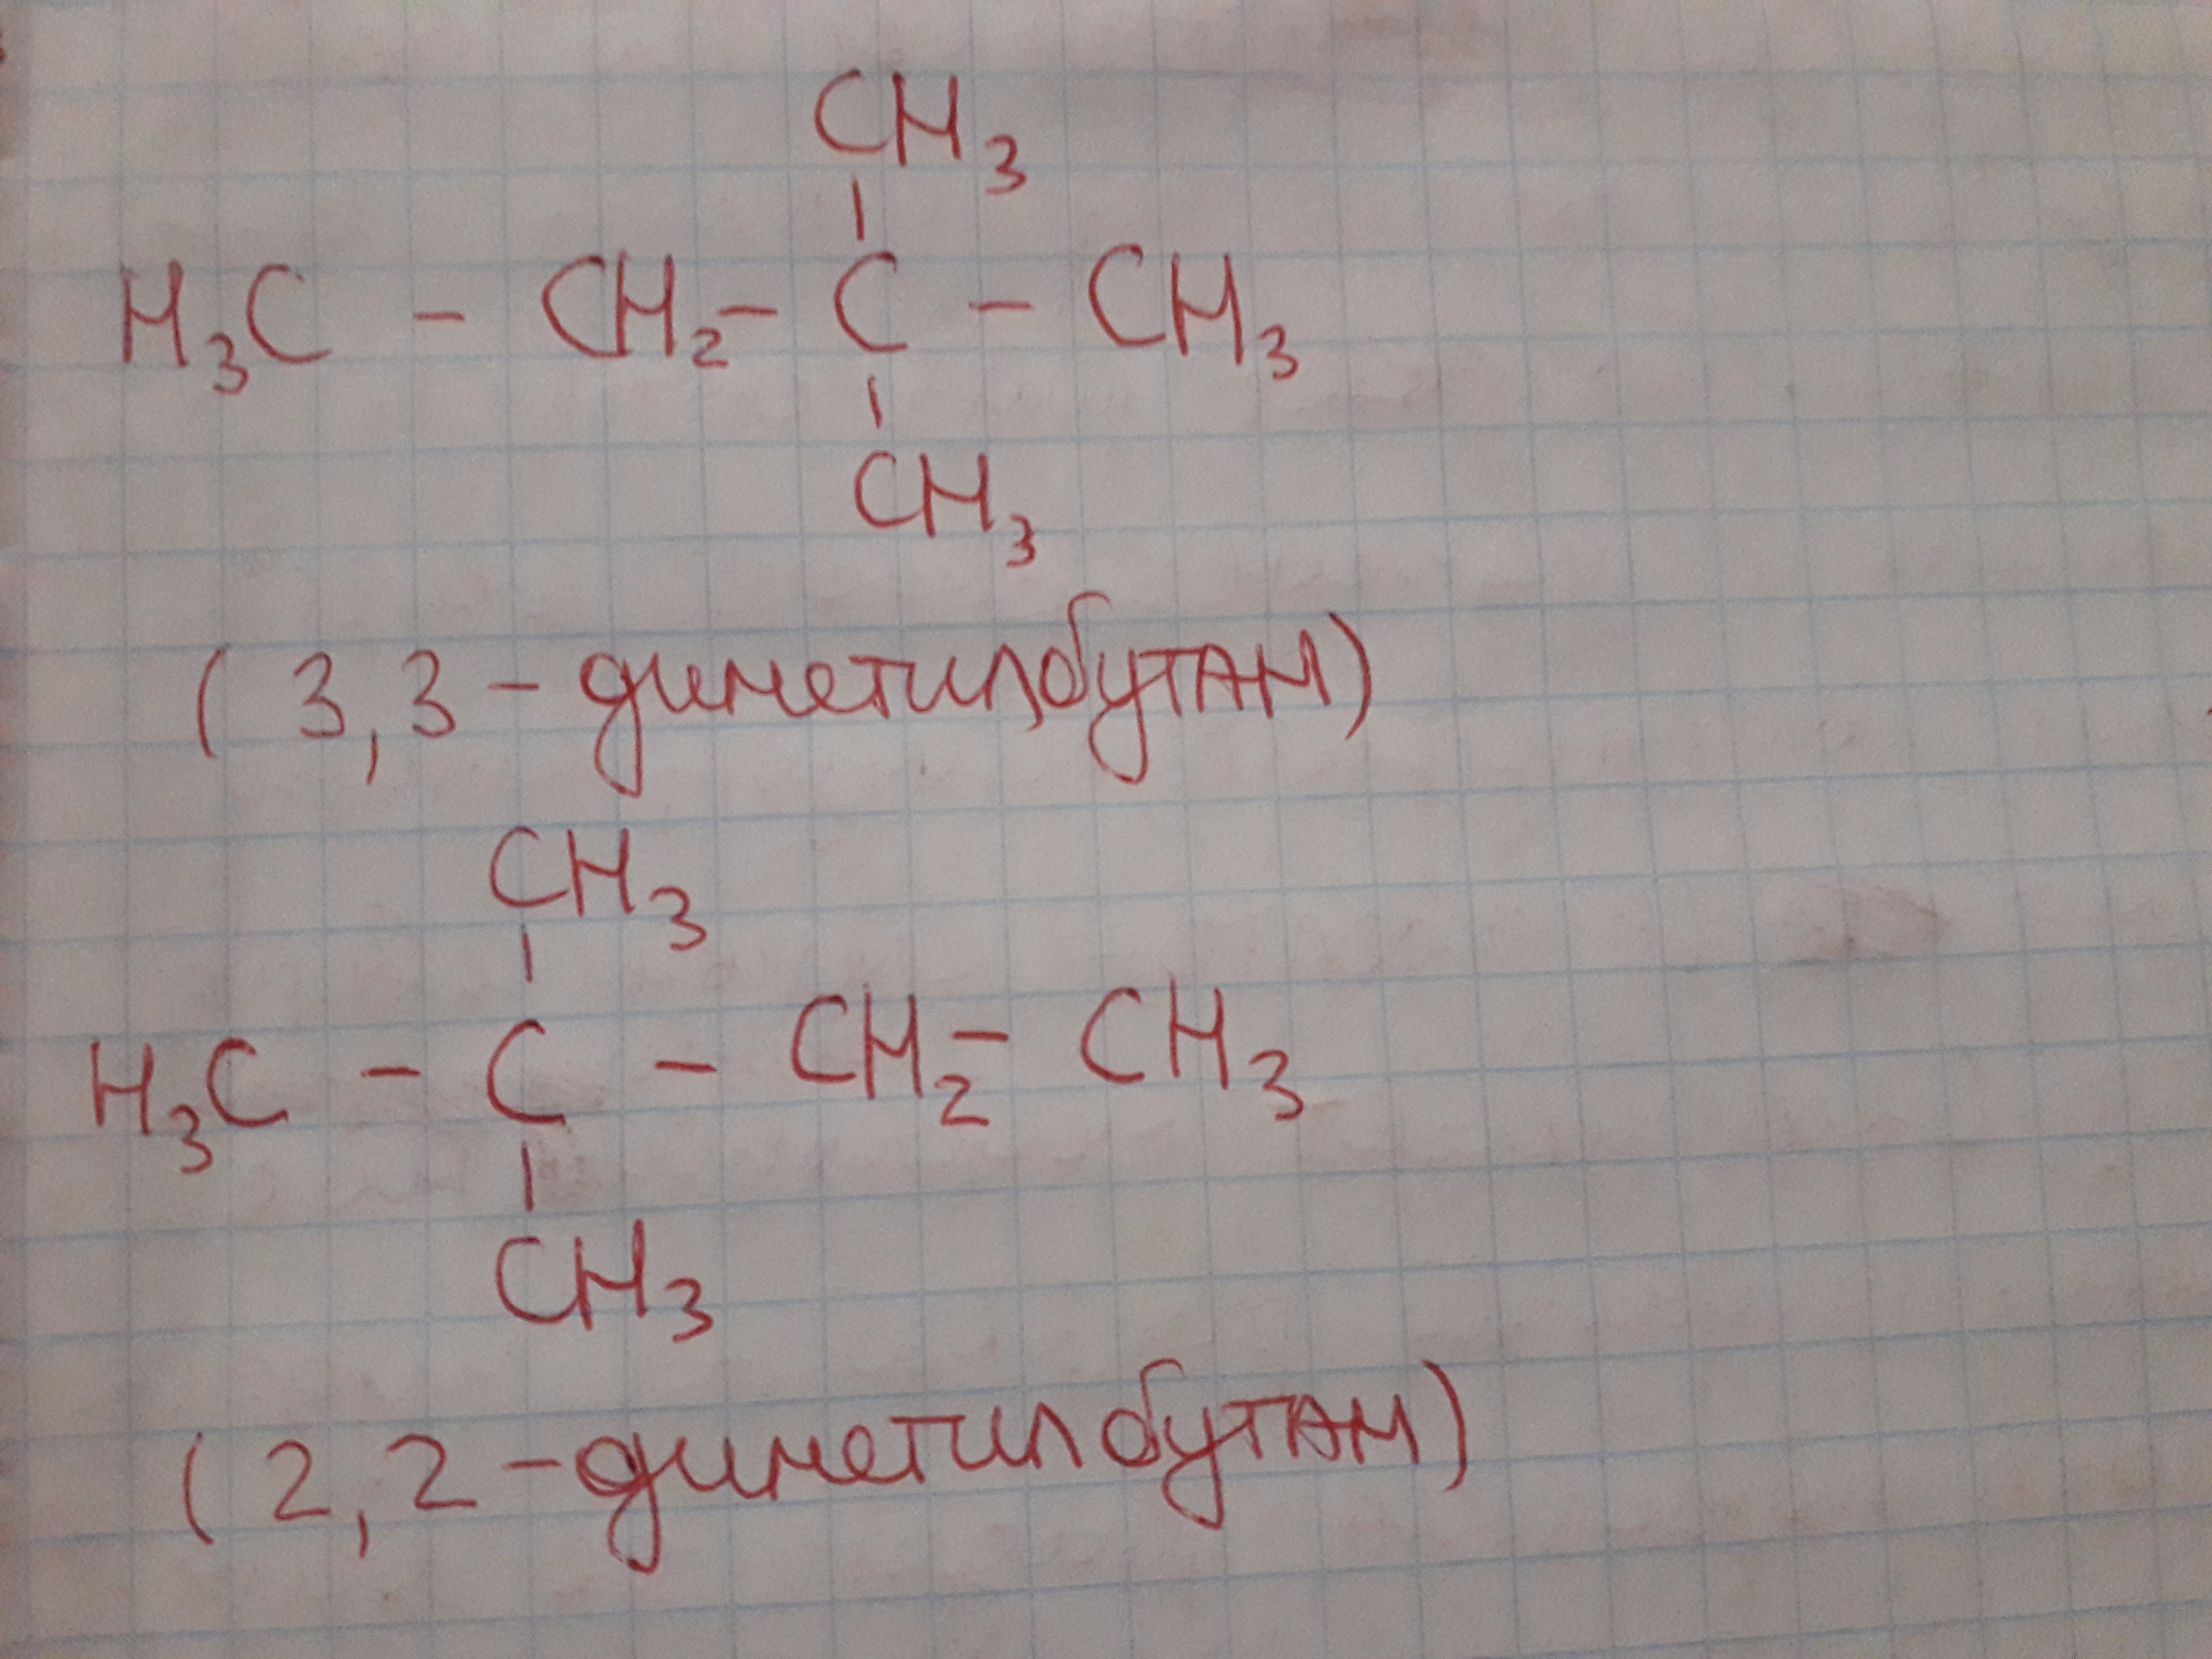 CH₃
H₃C - CH₂ - C - CH₃
CH₃
(3,3 - диметилбутан)
CH₃
H₃C - C - CH₂ - CH₃
CH₃
(2,2 - диметилбутан)